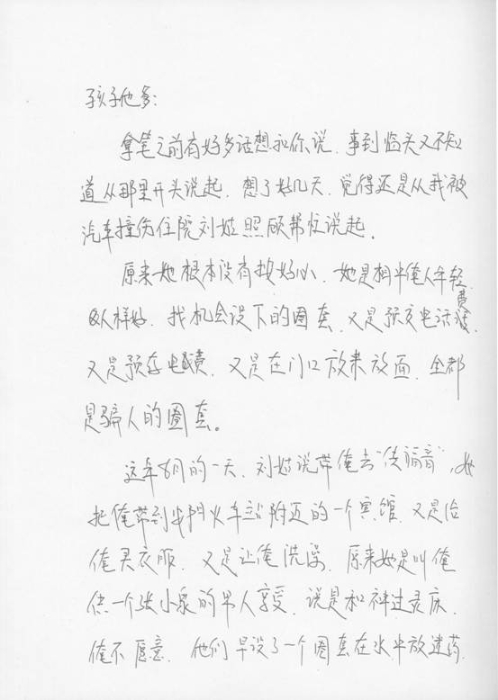 孩子他爹:
拿笔之前有好多话想和你说，事到临头又不知
道从那里开头说起，想了好几天，觉得还是从我被
汽车撞伤住院刘姐照顾帮忙说起。
原来她根本没有按好心，她是相中俺人年轻
人样好，找机会设下的圈套，又是预交电话费
又是预存电费，又是在门口放米放面，全都
是骗人的圈套。
这年8月的一天，刘姐说带俺去“传福音”，她
把俺带到火车站附近的一个宾馆，又是给
俺买衣服，又是让俺洗澡，原来她是叫俺
供一个张小泉的男人享受，说是和神过灵床，
俺不愿意，他们早设了一个圈套在水中放迷药